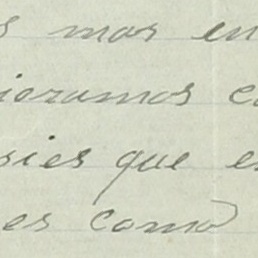 s mas en
ieramos co
sies que e
es como